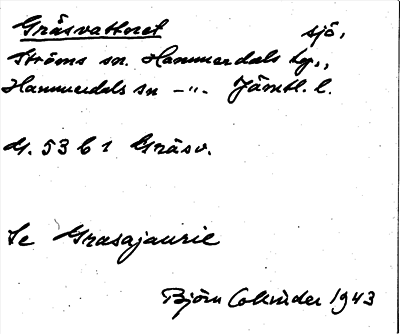 Gräsvattnet sjö,
Ströms sn. Hammerdals tg.,
Hammerdals sn -"- Jämtl. l.
G. 53 b 1 Gräsv.
Se Grasajaurie
Björn Collinder 1943